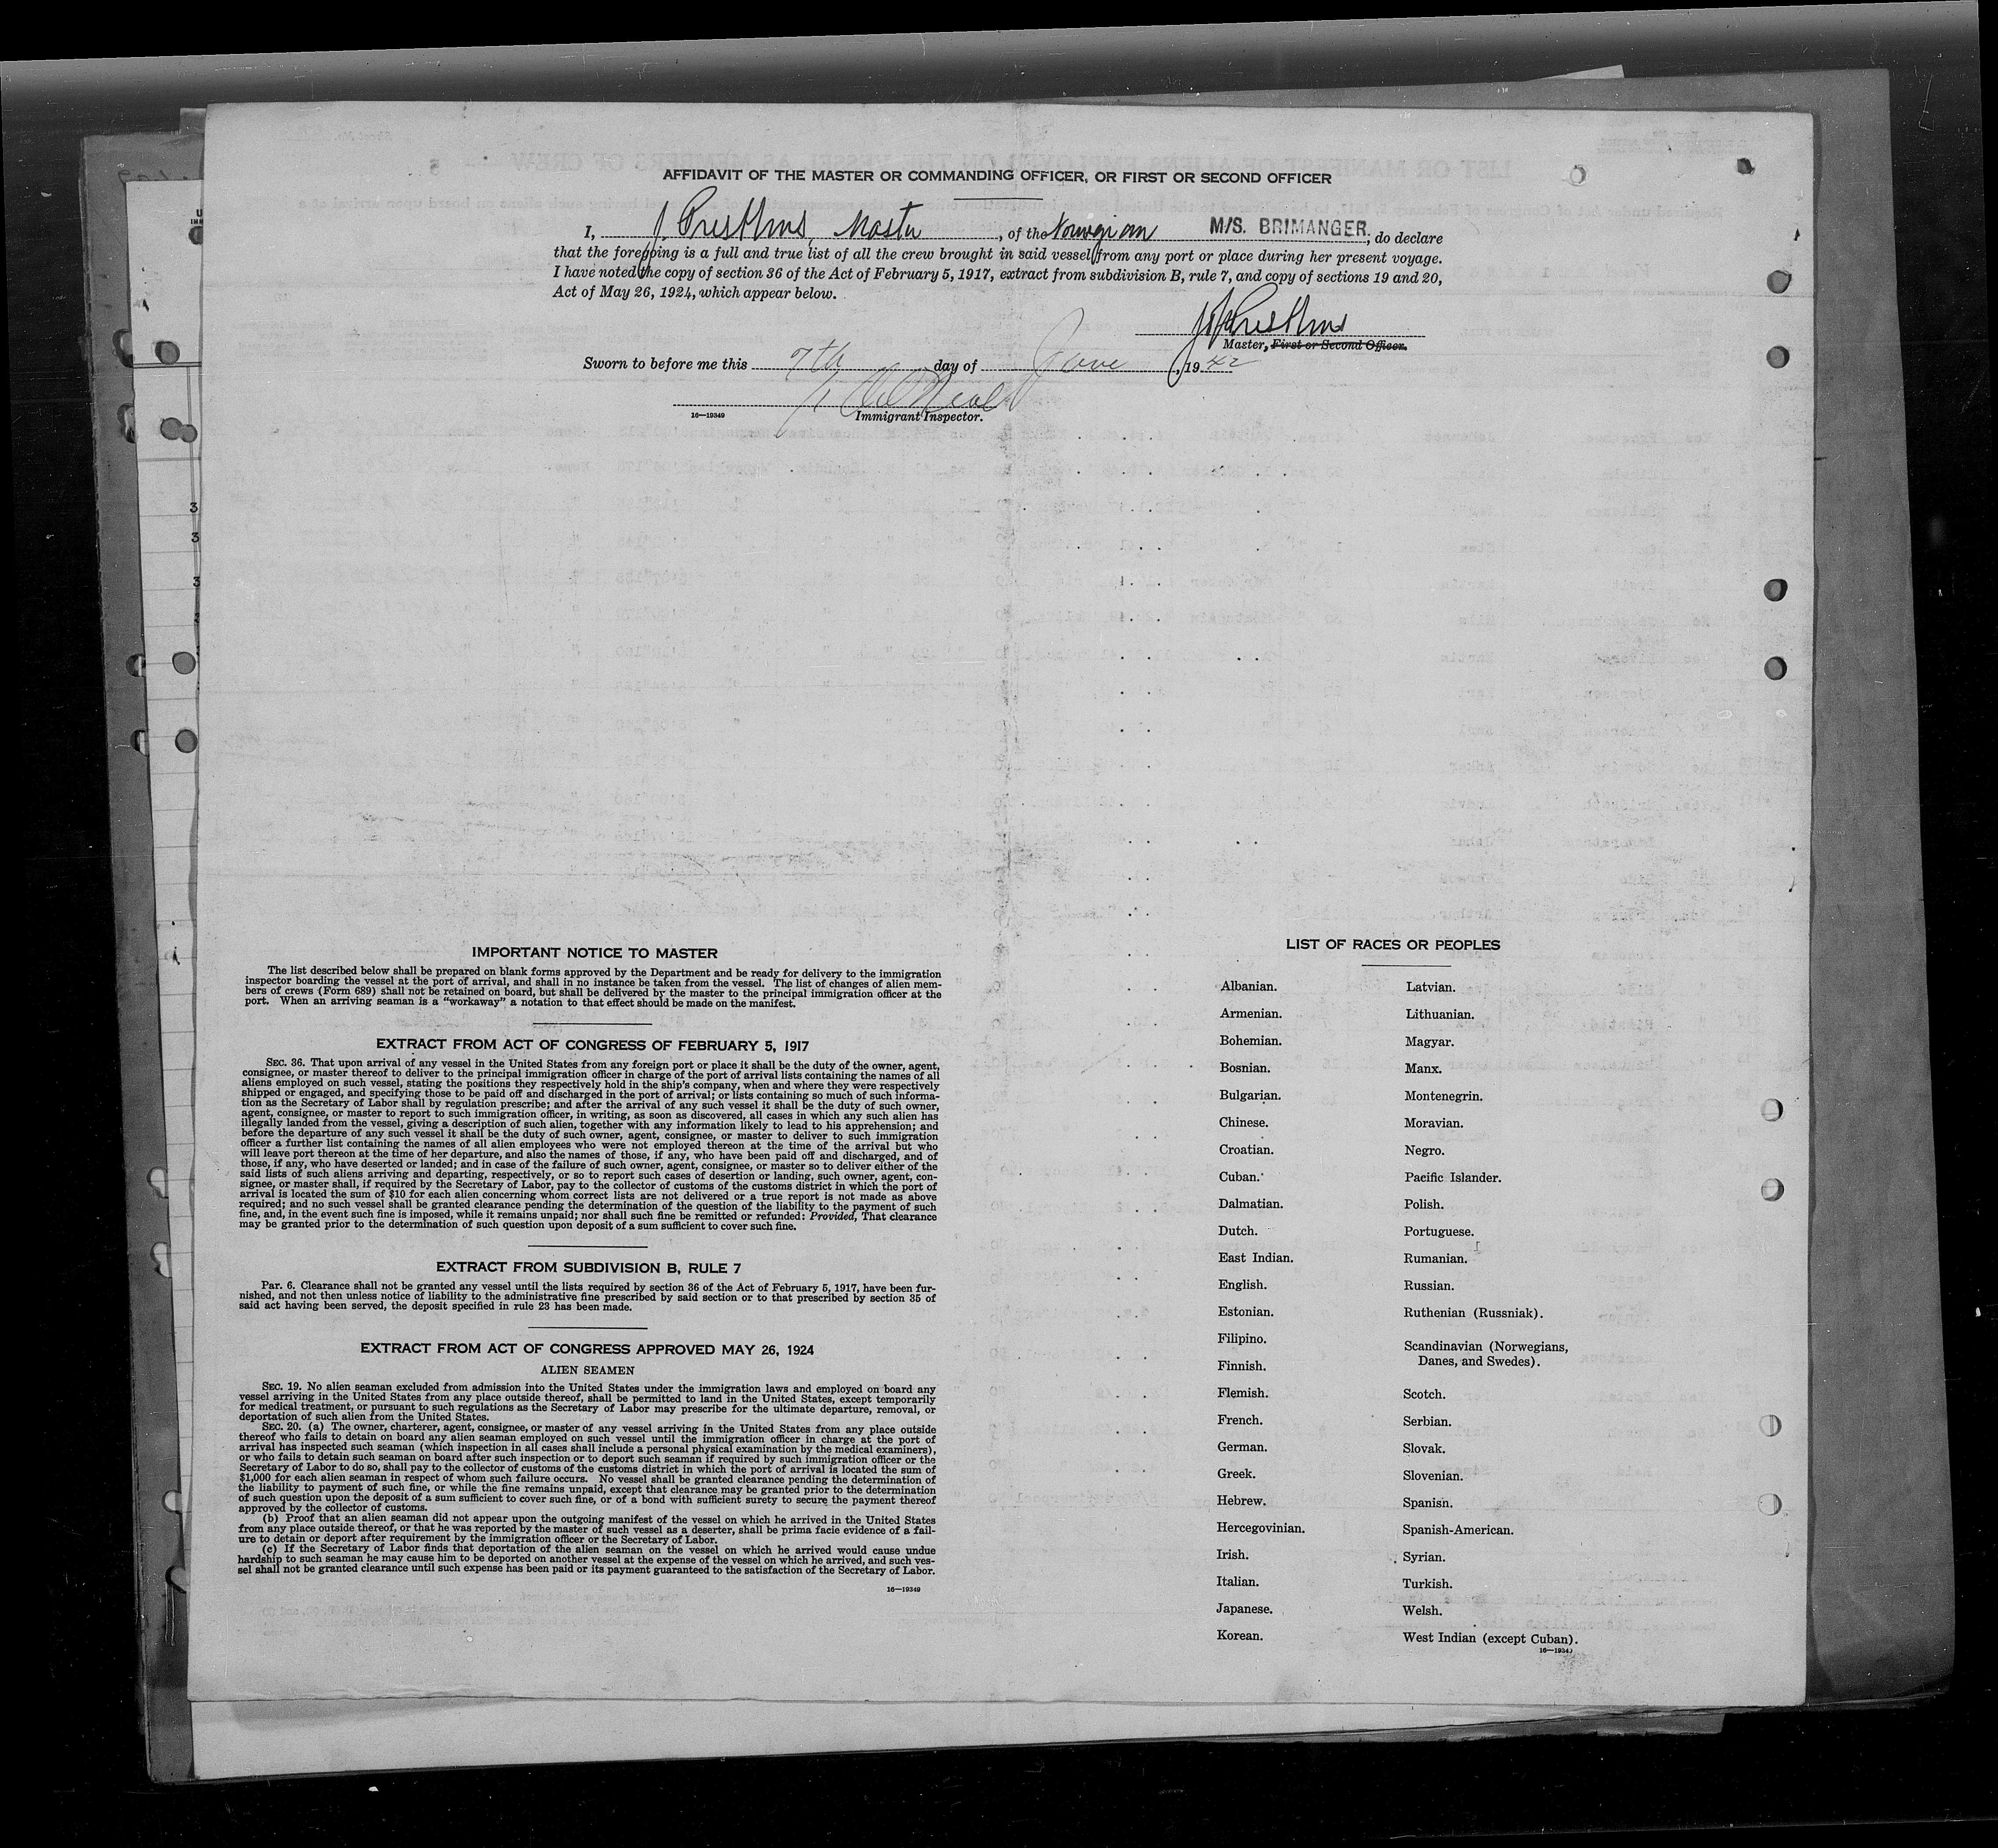 AFFIDAVIT OF THE MASTER OR COMMANDING OFFICER, OR FIRST OR SECOND OFFICER
I, J. Presthus, Master, of the Norwegian M/S. BRIMANGER, do declare
that the foregoing is a full and true list of all the crew brought in said vessel from any port or place during her present voyage.
I have noted the copy of section 36 of the Act of February 5, 1917, extract from subdivision B, rule 7, and copy of sections 19 and 20,
Act of May 26, 1924, which appear below.
Presthus
Master, First or Second Officer.
Sworn to before me this 7th day of June, 1942
16—19349 Immigrant Inspector.
IMPORTANT NOTICE TO MASTER
The list described below shall be prepared on blank forms approved by the Department and be ready for delivery to the immigration
inspector boarding the vessel at the port of arrival, and shall in no instance be taken from the vessel. The list of changes of alien mem-
bers of crews (Form 689) shall not be retained on board, but shall be delivered by the master to the principal immigration officer at the
port. When an arriving seaman is a “workaway” a notation to that effect should be made on the manifest.
EXTRACT FROM ACT OF CONGRESS OF FEBRUARY 5, 1917
SEC. 36. That upon arrival of any vessel in the United States from any foreign port or place it shall be the duty of the owner, agent,
consignee, or master thereof to deliver to the principal immigration officer in charge of the port of arrival lists containing the names of all
aliens employed on such vessel, stating the positions they respectively hold in the ship's company, when and where they were respectively
shipped or engaged, and specifying those to be paid off and discharged in the port of arrival; or lists containing so much of such informa-
tion as the Secretary of Labor shall by regulation prescribe; and after the arrival of any such vessel it shall be the duty of such owner,
agent, consignee, or master to report to such immigration officer, in writing, as soon as discovered, all cases in which any such alien has
illegally landed from the vessel, giving a description of such alien, together with any information likely to lead to his apprehension; and
before the departure of any such vessel it shall be the duty of such owner, agent, consignee, or master to deliver to such immigration
officer a further list containing the names of all alien employees who were not employed thereon at the time of the arrival but who
will leave port thereon at the time of her departure, and also the names of those, if any, who have been paid off and discharged, and of
those, if any, who have deserted or landed; and in case of the failure of such owner, agent, consignee, or master so to deliver either of the
said lists of such aliens arriving and departing, respectively, or so to report such cases of desertion or landing, such owner, agent, con-
signee, or master shall, if required by the Secretary of Labor, pay to the collector of customs of the customs district in which the port of
arrival is located the sum of $10 for each alien concerning whom correct lists are not delivered or a true report is not made as above
required; and no such vessel shall be granted clearance pending the determination of the question of the liability to the payment of such
fine, and, in the event such fine is imposed, while it remains unpaid; nor shall such fine be remitted or refunded: Provided, That clearance
may be granted prior to the determination of such question upon deposit of a sum sufficient to cover such fine.
EXTRACT FROM SUBDIVISION B, RULE 7
Par. 6. Clearance shall not be granted any vessel until the lists required by section 36 of the Act of February 5, 1917, have been fur-
nished, and not then unless notice of liability to the administrative fine prescribed by said section or to that prescribed by section 35 of
said act having been served, the deposit specified in rule 23 has been made.
EXTRACT FROM ACT OF CONGRESS APPROVED MAY 26, 1924
ALIEN SEAMEN
SEC. 19. No alien seaman excluded from admission into the United States under the immigration laws and employed on board any
vessel arriving in the United States from any place outside thereof, shall be permitted to land in the United States, except temporarily
for medical treatment, or pursuant to such regulations as the Secretary of Labor may prescribe for the ultimate departure, removal, or
deportation of such alien from the United States.
SEC. 20. (a) The owner, charterer, agent, consignee, or master of any vessel arriving in the United States from any place outside
thereof who fails to detain on board any alien seaman employed on such vessel until the immigration officer in charge at the port of
arrival has inspected such seaman (which inspection in all cases shall include a personal physical examination by the medical examiners),
or who fails to detain such seaman on board after such inspection or to deport such seaman if required by such immigration officer or the
Secretary of Labor to do so, shall pay to the collector of customs of the customs district in which the port of arrival is located the sum of
$1,000 for each alien seaman in respect of whom such failure occurs. No vessel shall be granted clearance pending the determination of
the liability to payment of such fine, or while the fine remains unpaid, except that clearance may be granted prior to the determination
of such question upon the deposit of a sum sufficient to cover such fine, or of a bond with sufficient surety to secure the payment thereof
approved by the collector of customs.
(b) Proof that an alien seaman did not appear upon the outgoing manifest of the vessel on which he arrived in the United States
from any place outside thereof, or that he was reported by the master of such vessel as a deserter, shall be prima facie evidence of a fail-
ure to detain or deport after requirement by the immigration officer or the Secretary of Labor.
(c) If the Secretary of Labor finds that deportation of the alien seaman on the vessel on which he arrived would cause undue
hardship to such seaman he may cause him to be deported on another vessel at the expense of the vessel on which he arrived, and such ves-
sel shall not be granted clearance until such expense has been paid or its payment guaranteed to the satisfaction of the Secretary of Labor.
16—19349
LIST OF RACES OR PEOPLES
Albanian.
Armenian.
Bohemian.
Bosnian.
Bulgarian.
Chinese.
Croatian.
Cuban.
Dalmatian.
Dutch.
East Indian.
English.
Estonian.
Filipino.
Finnish.
Flemish.
French.
German.
Greek.
Hebrew.
Hercegovinian.
Irish.
Italian.
Japanese.
Korean.
Latvian.
Lithuanian.
Magyar.
Manx.
Montenegrin.
Moravian.
Negro.
Pacific Islander.
Polish.
Portuguese.
Rumanian.
Russian.
Ruthenian (Russniak).
Scandinavian (Norwegians,
Danes, and Swedes).
Scotch.
Serbian.
Slovak.
Slovenian.
Spanish.
Spanish-American.
Syrian.
Turkish.
Welsh.
West Indian (except Cuban).